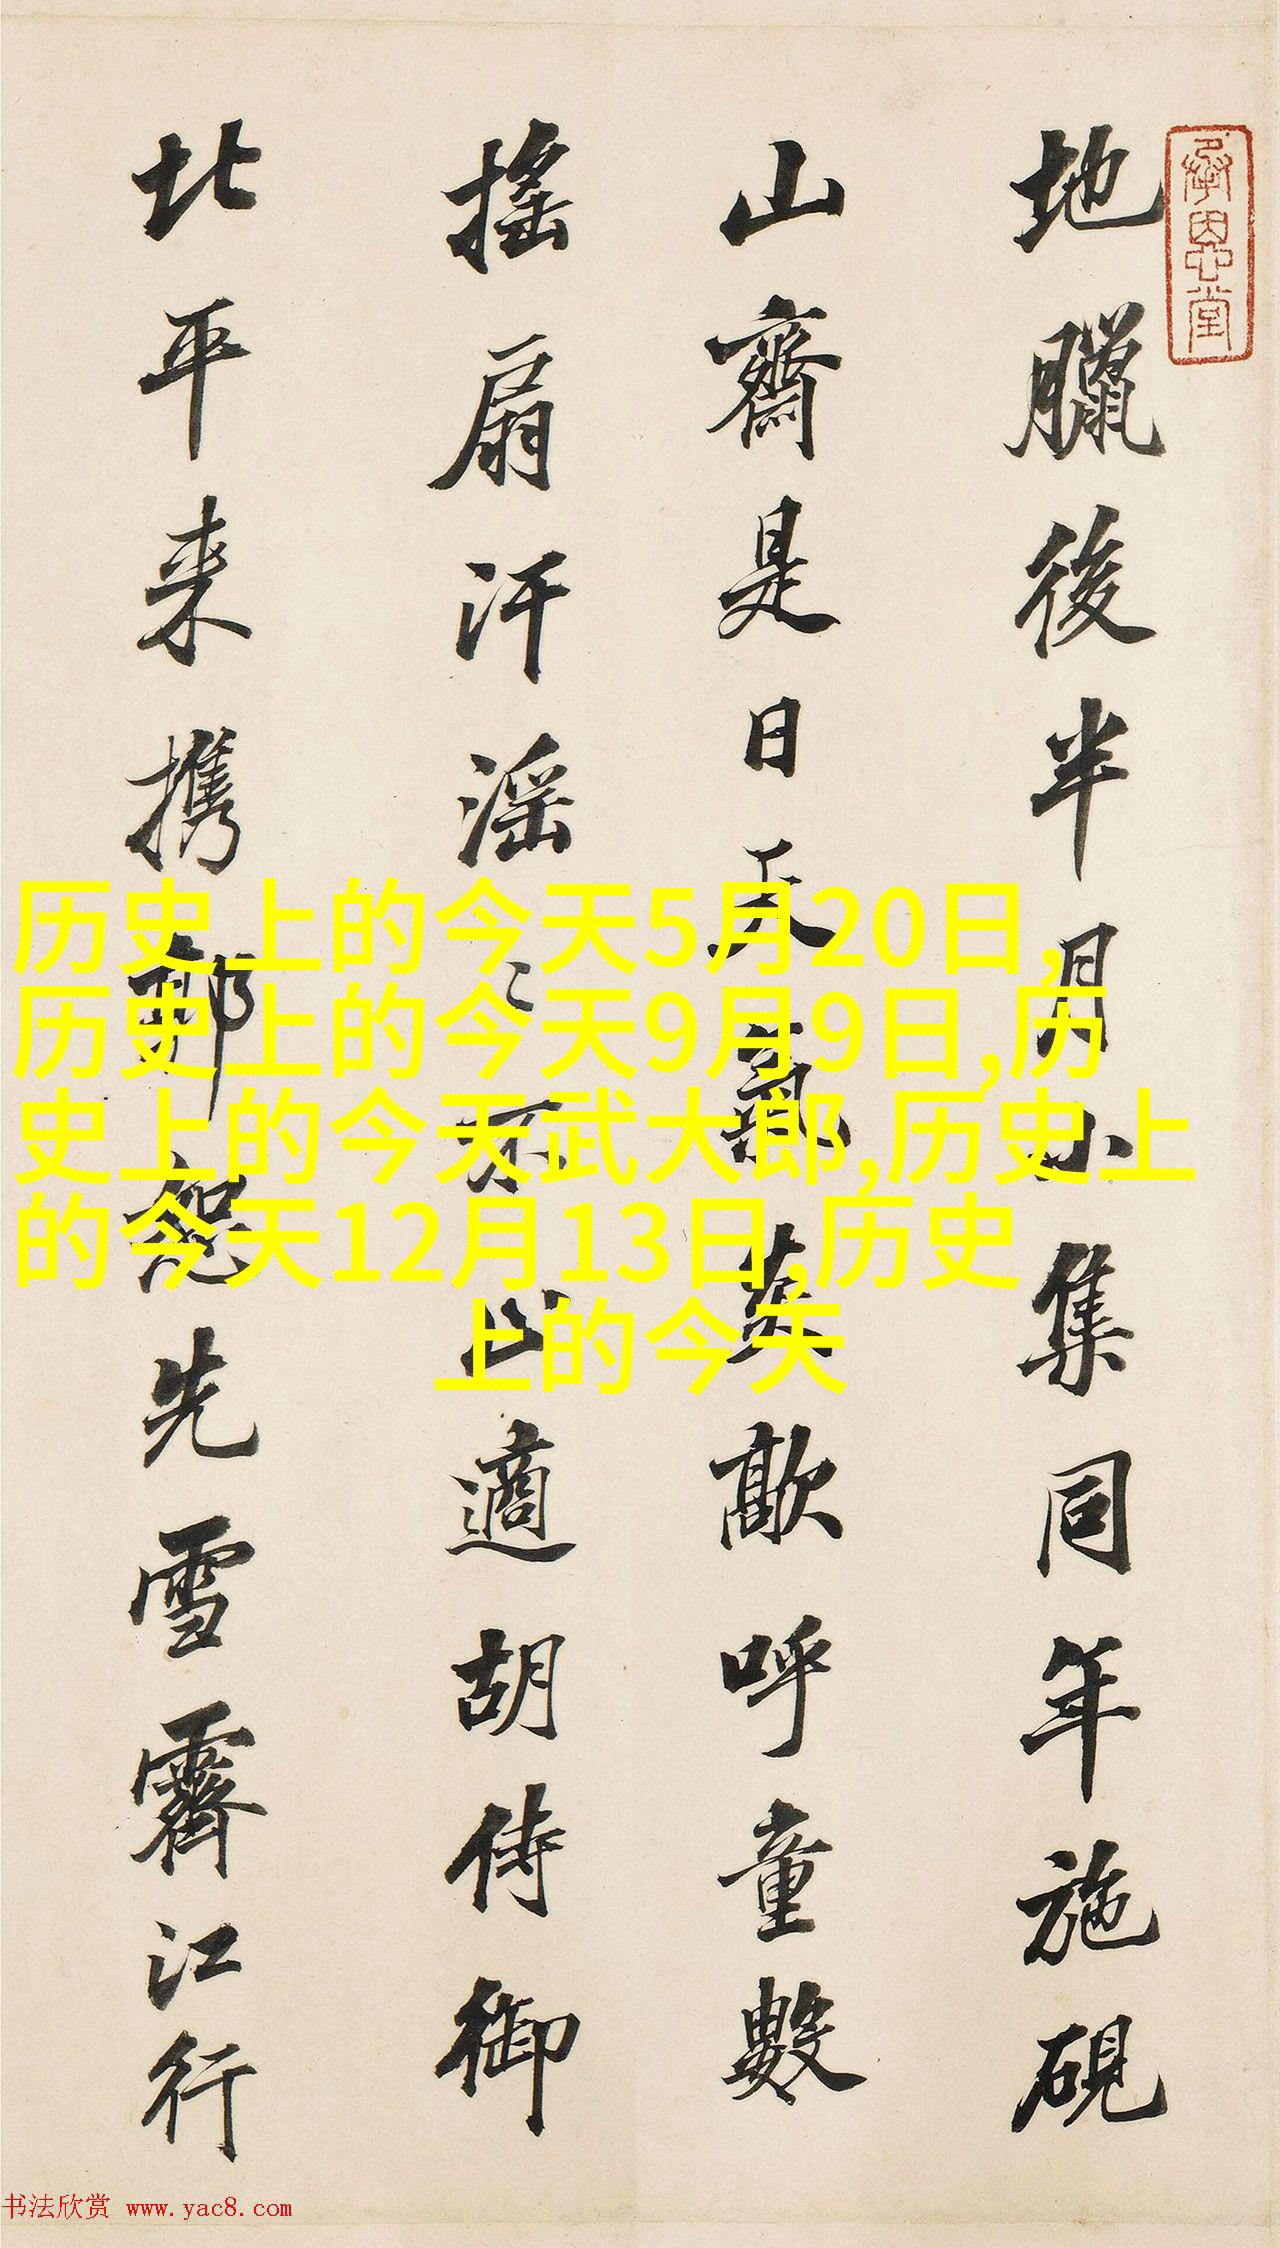 地臘後半月小集同年施硯
山齋是日天氣蒸歊呼童數
搖扇汗淫〻不止適胡侍御
北平来携郭恕先雪霽江行
承恩堂
历史上的今天5月20日,
历史上的今天9月9日,历
史上的今天武大郎,历史上
的今天12月13日,历史
上的今天
书法欣赏 www.yac8.com